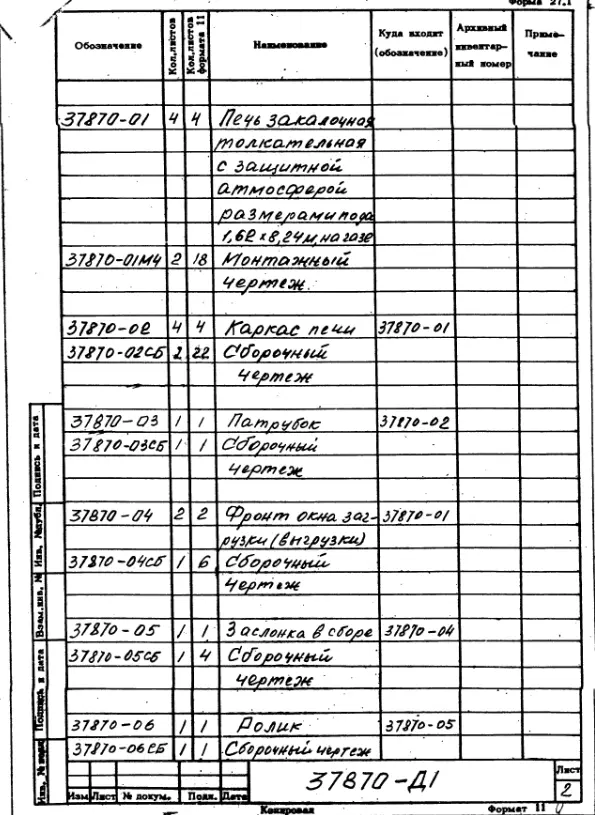 Форма 27.1
Обозначение Кол.листов Кол.листов формата 11 Наименование Куда входит (обозначение) Архивный инвентарный номер Примечание
37870-01 4 4 Печь закалочная
толкательная
с защитной
атмосферой
размерами пода
1,62×8,24м, на газе
37870-01МЧ 2 18 Монтажный
чертеж.
37870-02 4 4 Каркас печи 37870-01
37870-02СБ 2 22 Сборочный
чертеж
37870-03 1 1 Патрубок 37870-02
37870-03СБ 1 1 Сборочный
чертеж
37870-04 2 2 Фронт окна заг- 37870-01
рузки (выгрузки)
37870-04СБ 1 6 Сборочный
чертеж
37870-05 1 1 Заслонка в сборе 37870-04
37870-05СБ 1 4 Сборочный
чертеж
37870-06 1 1 Ролик 37870-05
37870-06СБ 1 1 Сборочный чертеж
Подпись и дата
Инв. №дубл.
Взам.инв. №
Подпись и дата
Инв. № подл.
37870-Д1
Лист
2
Изм Лист № докум. Подп. Дата
Копировал Формат 11